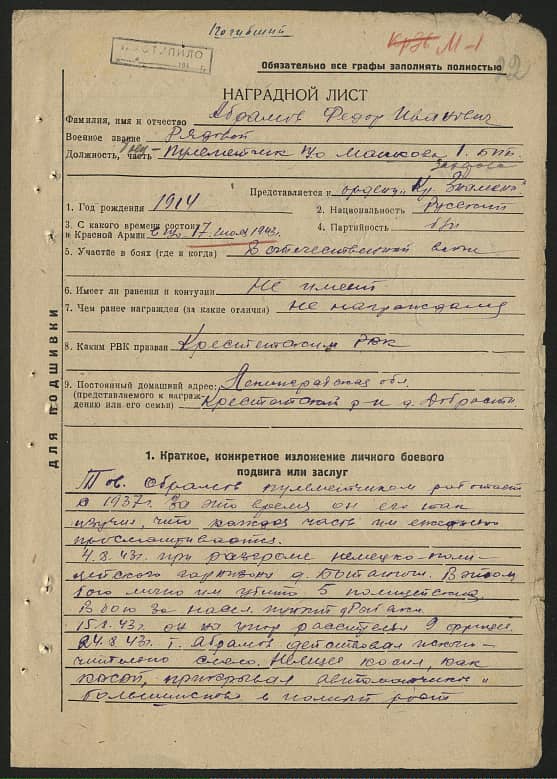 Погибший
ПОСТУПИЛО
М-1
22
Обязательно все графы заполнять полностью
НАГРАДНОЙ ЛИСТ
Фамилия, имя и отчество Абрамов Федор Иванович
Военное звание Рядовой
Должность, часть пулеметчик п/о
Представляется к ордену "Кр. Знамени"
1. Год рождения 1914
2. Национальность Русский
3. С какого времени состоит в Красной Армии 17 июля 1943г.
4. Партийность б/п
5. Участие в боях (где и когда) В отечественной
6. Имеет ли ранения и контузии Не имеет
7. Чем ранее награжден (за какие отличия) не награждался
8. Каким РВК призван Крестецким РВК
9. Постоянный домашний адрес: Ленинградская обл.
(представляемого к награж-
дению или его семьи) Крестецкий р-н д.
ДЛЯ ПОДШИВКИ
1. Краткое, конкретное изложение личного боевого
подвига или заслуг
Тов. Абрамов пулеметчиком работает
с 1937г. За это время он его так
изучил, что каждая часть им ежедневно
просматривается.
4.8.43г. при разгроме немецко-поли-
цейского гарнизона д. В этом
бою лично им убито 5 полицейских.
В бою за насел. пункт
15.8.43г. он на упор расстрелял 9 фрицев.
24.8.43г. т. Абрамов действовал исклю-
чительно смело. Немцев косил, как
косой, прикрывая автоматчиков
большинство в полный рост